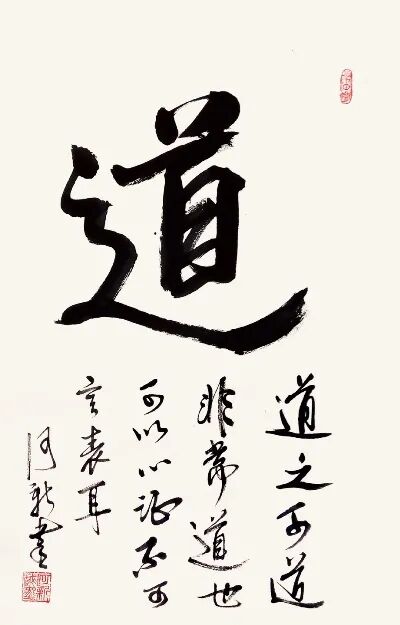 道
道之可道
非常道也
可以心证不可
言表耳
何新書